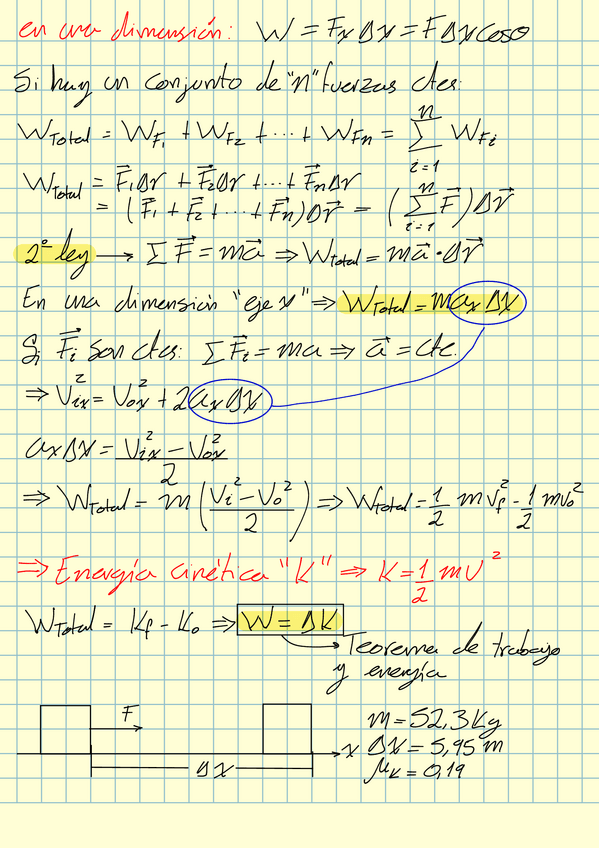 en una dimensión: W = Fx Δx = F Δx cosθ
Si hay un conjunto de "n" fuerzas ctes:
W_Total = W_F₁ + W_F₂ + ... + W_Fn = Σ_{i=1}^{n} W_Fi
W_Total = F⃗₁Δr + F⃗₂Δr + ... + F⃗nΔr
= (F⃗₁ + F⃗₂ + ... + F⃗n)Δr⃗ = (Σ_{i=1}^{n} F⃗)Δr⃗
2° ley → ΣF⃗ = ma⃗ ⇒ W_Total = ma⃗·Δr⃗
En una dimensión "eje x" ⇒ W_Total = max Δx
Si F⃗i son ctes: ΣF⃗i = ma ⇒ a⃗ = cte.
⇒ Vix² = Vox² + 2ax Δx
axΔx = (Vix² - Vox²)/2
⇒ W_Total = m((Vi² - Vo²)/2) ⇒ W_Total = 1/2 mVf² - 1/2 mVo²
⇒ Energía cinética "K" ⇒ K = 1/2 mV²
W_Total = Kf - Ko ⇒ W = ΔK
Teorema de trabajo
y energía
F
x
Δx
m = 52,3 Kg
Δx = 5,95 m
μK = 0,19